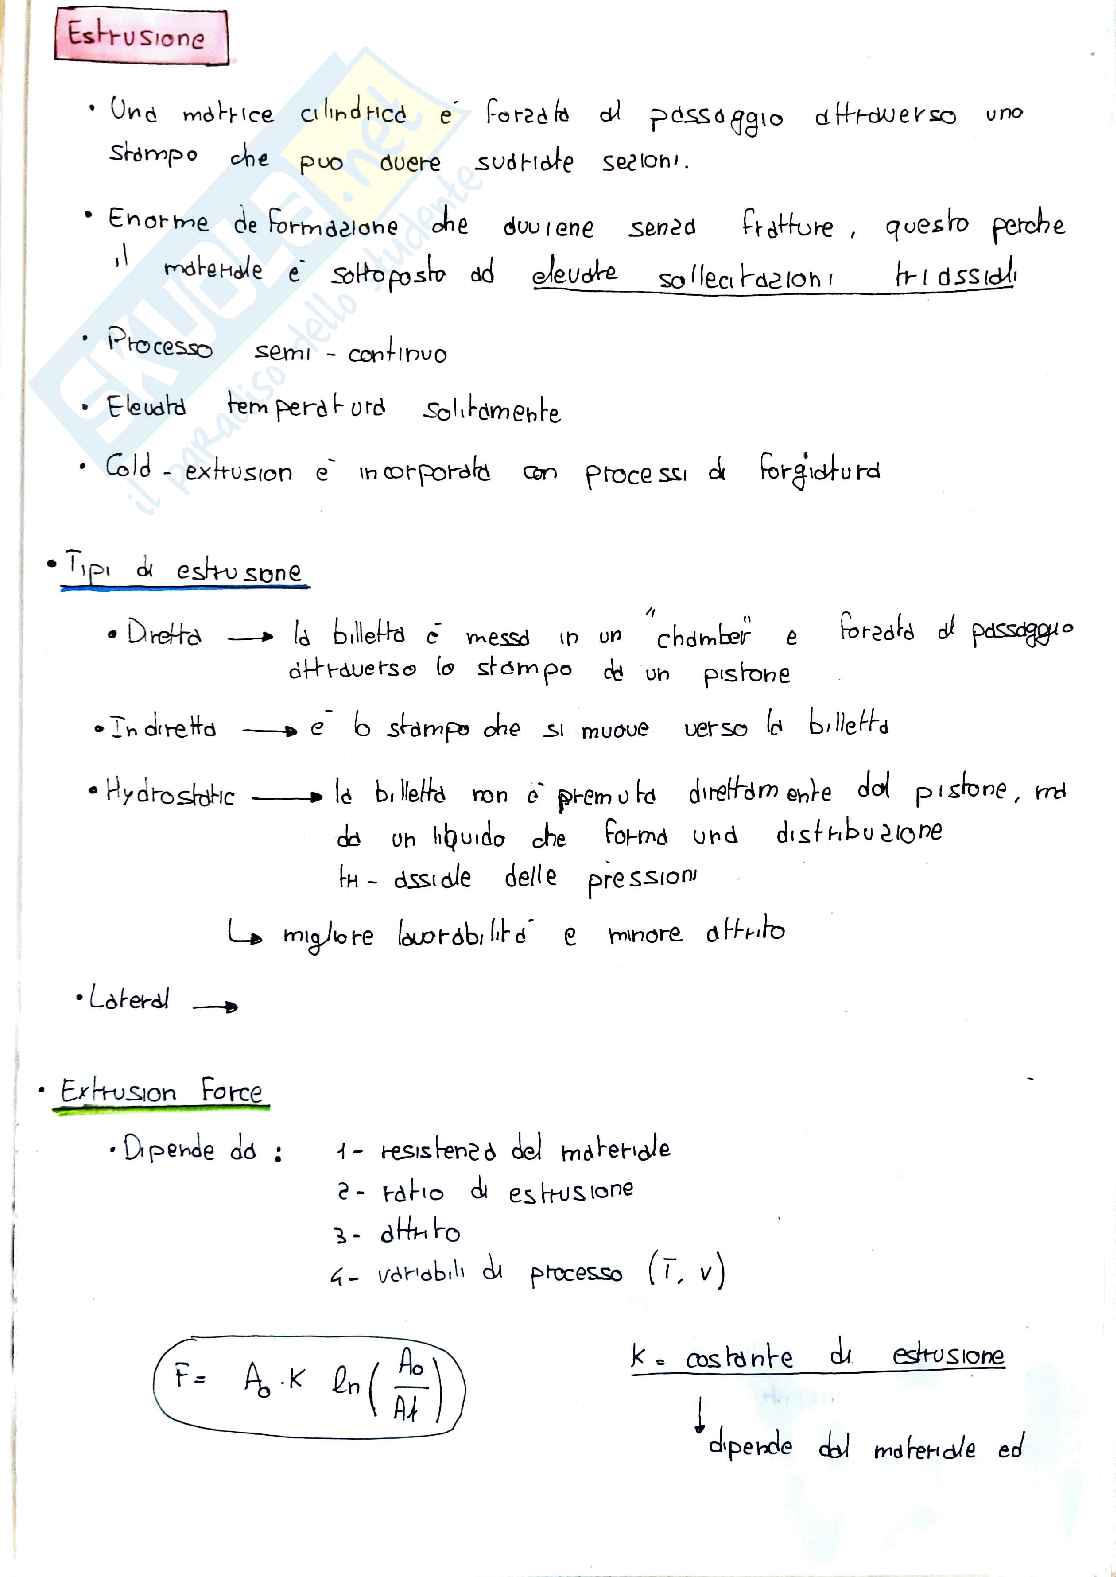 Estrusione
• Una matrice cilindrica è forzata al passaggio attraverso uno
stampo che può avere svariate sezioni.
• Enorme deformazione che avviene senza fratture, questo perche
il materiale è sottoposto ad elevate sollecitazioni triassiali
• Processo semi-continuo
• Elevata temperatura solitamente
• Cold-extrusion è incorporata con processi di forgiatura
• Tipi di estrusione
• Diretta → la billetta è messa in un "chamber" e forzata al passaggio
attraverso lo stampo da un pistone
• Indiretta → è lo stampo che si muove verso la billetta
• Hydrostatic → la billetta non è premuta direttamente dal pistone, ma
da un liquido che forma una distribuzione
tri-assiale delle pressioni
↳ migliore lavorabilità e minore attrito
• Lateral →
• Extrusion Force
• Dipende da : 1- resistenza del materiale
2- ratio di estrusione
3- attrito
4- variabili di processo (T, v)
F= A₀·K ln(A₀/Af)
K = costante di estrusione
↓ dipende dal materiale ed
SKUOLA.net
il paradiso dello studente